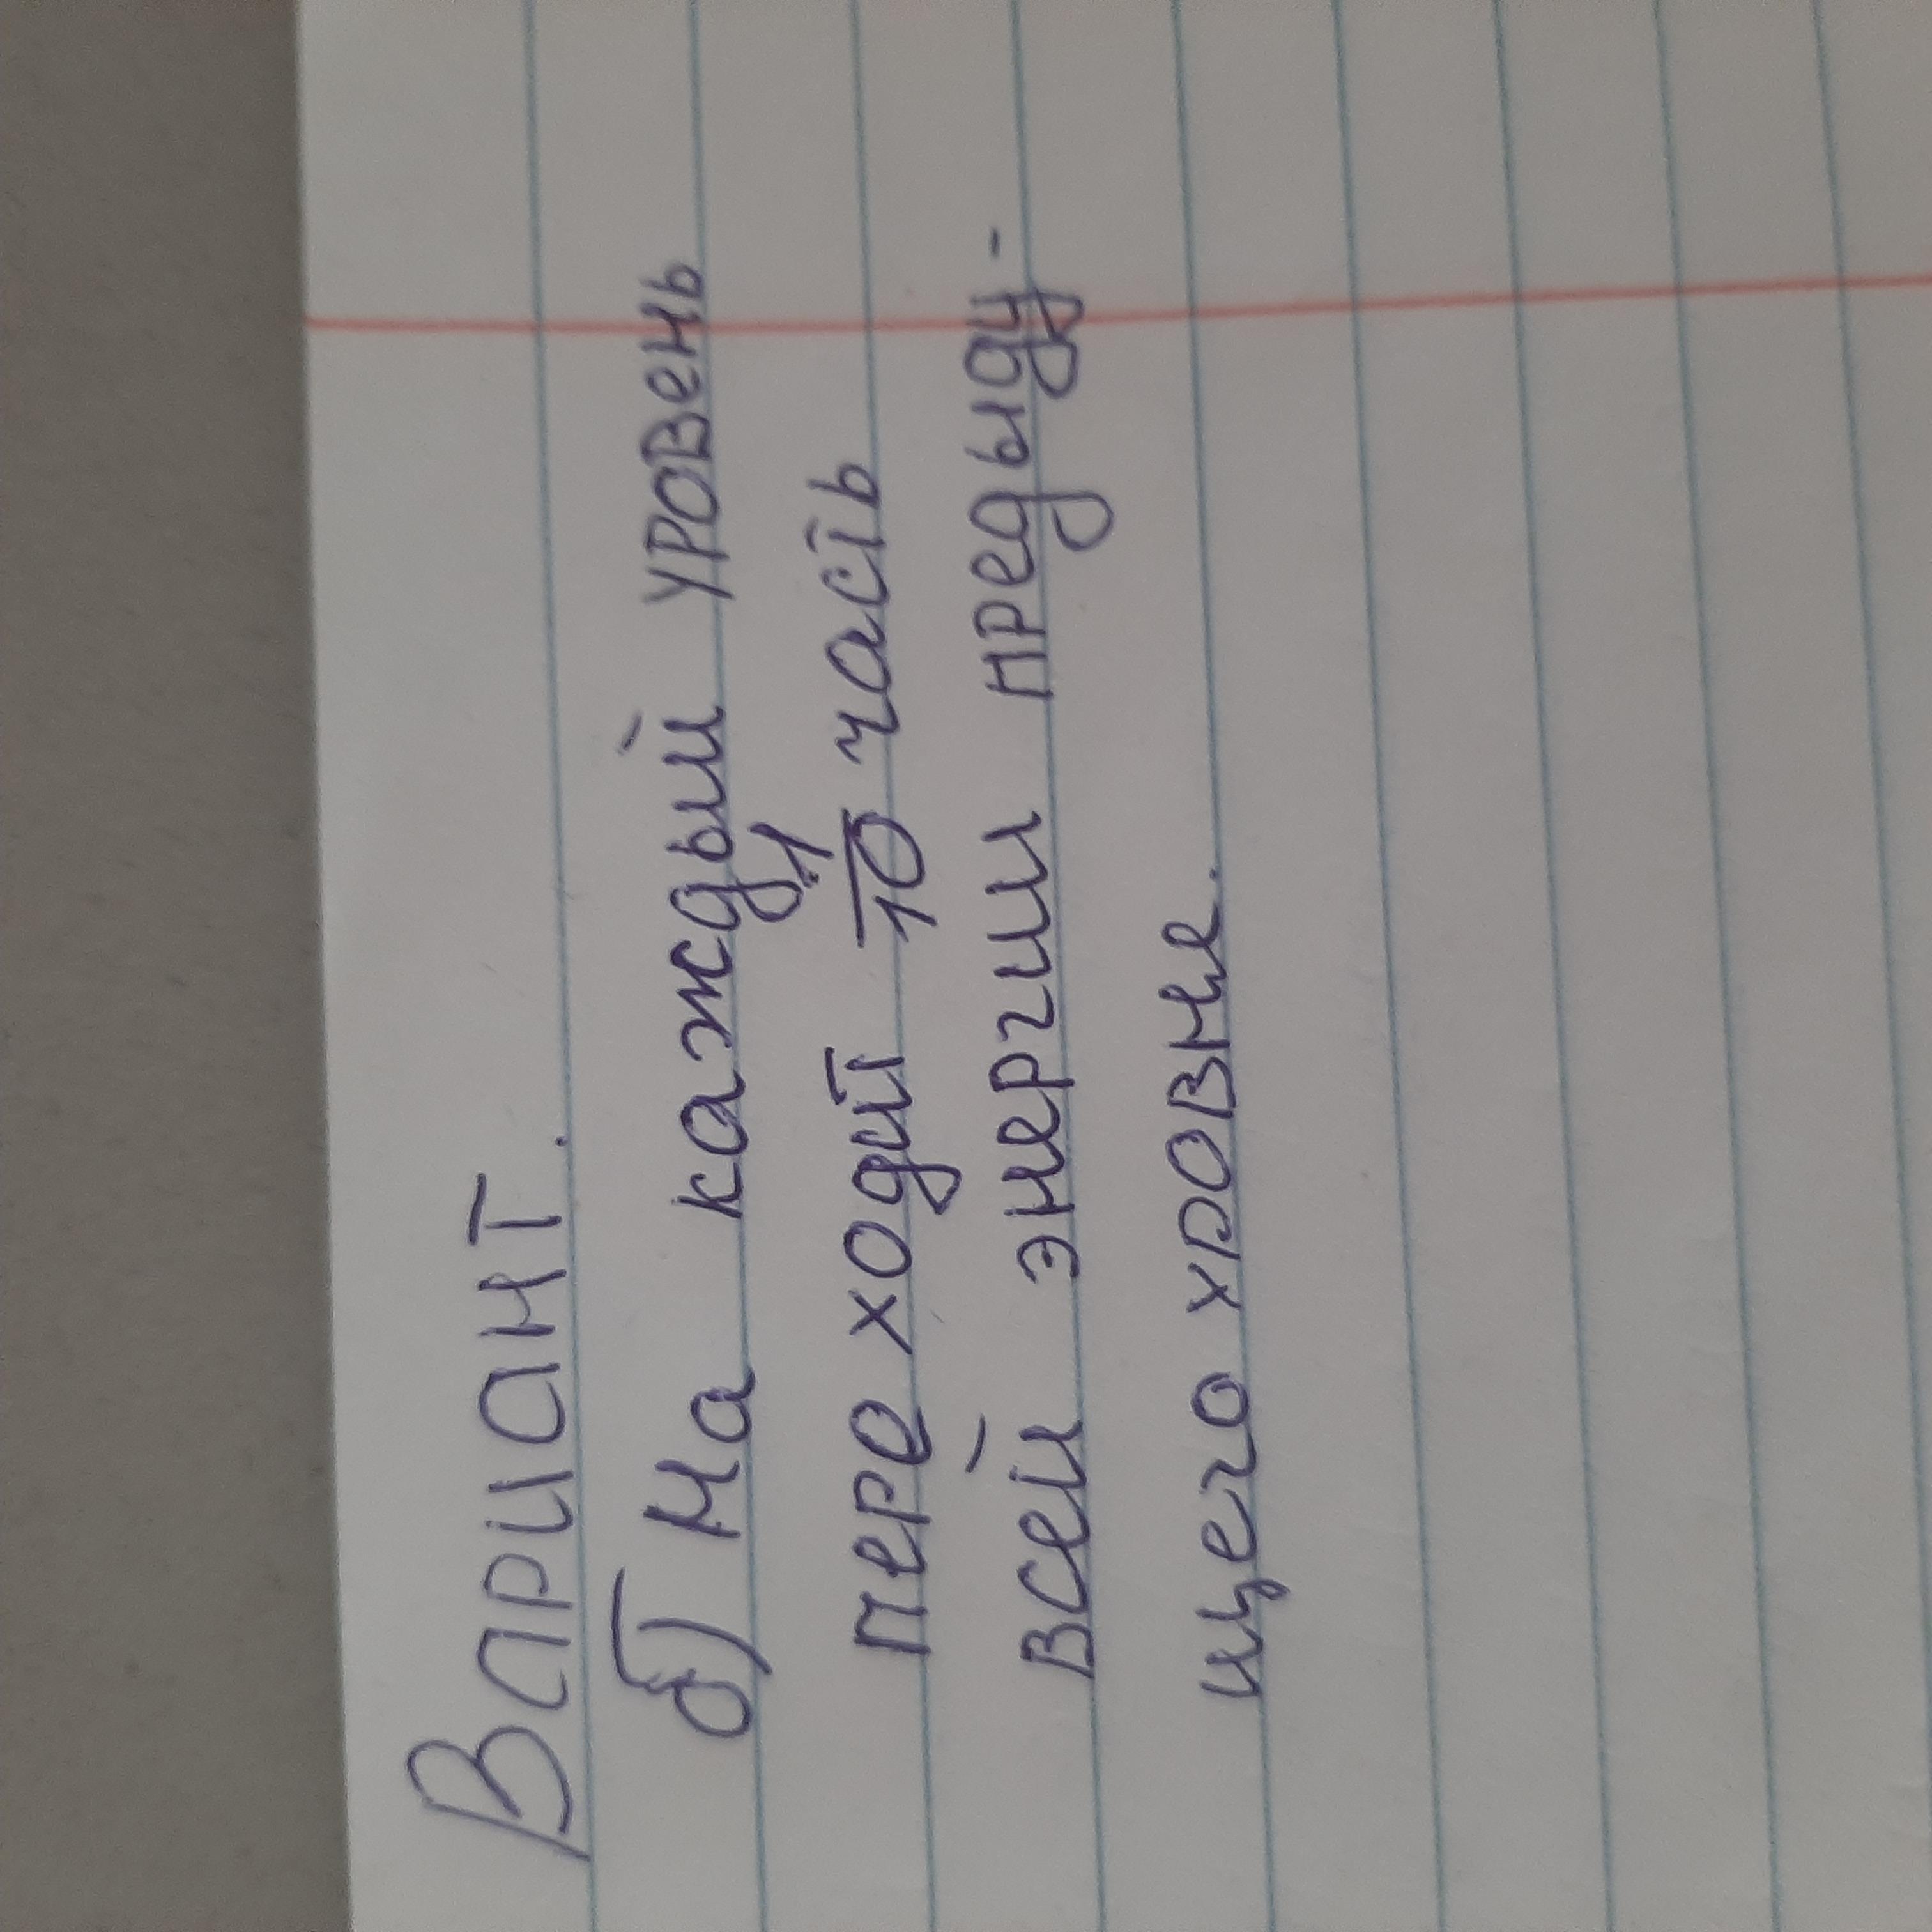 Вариант.
б) На каждый уровень
переходит 1/10 часть
всей энергии преды​ду-
щего уровне.